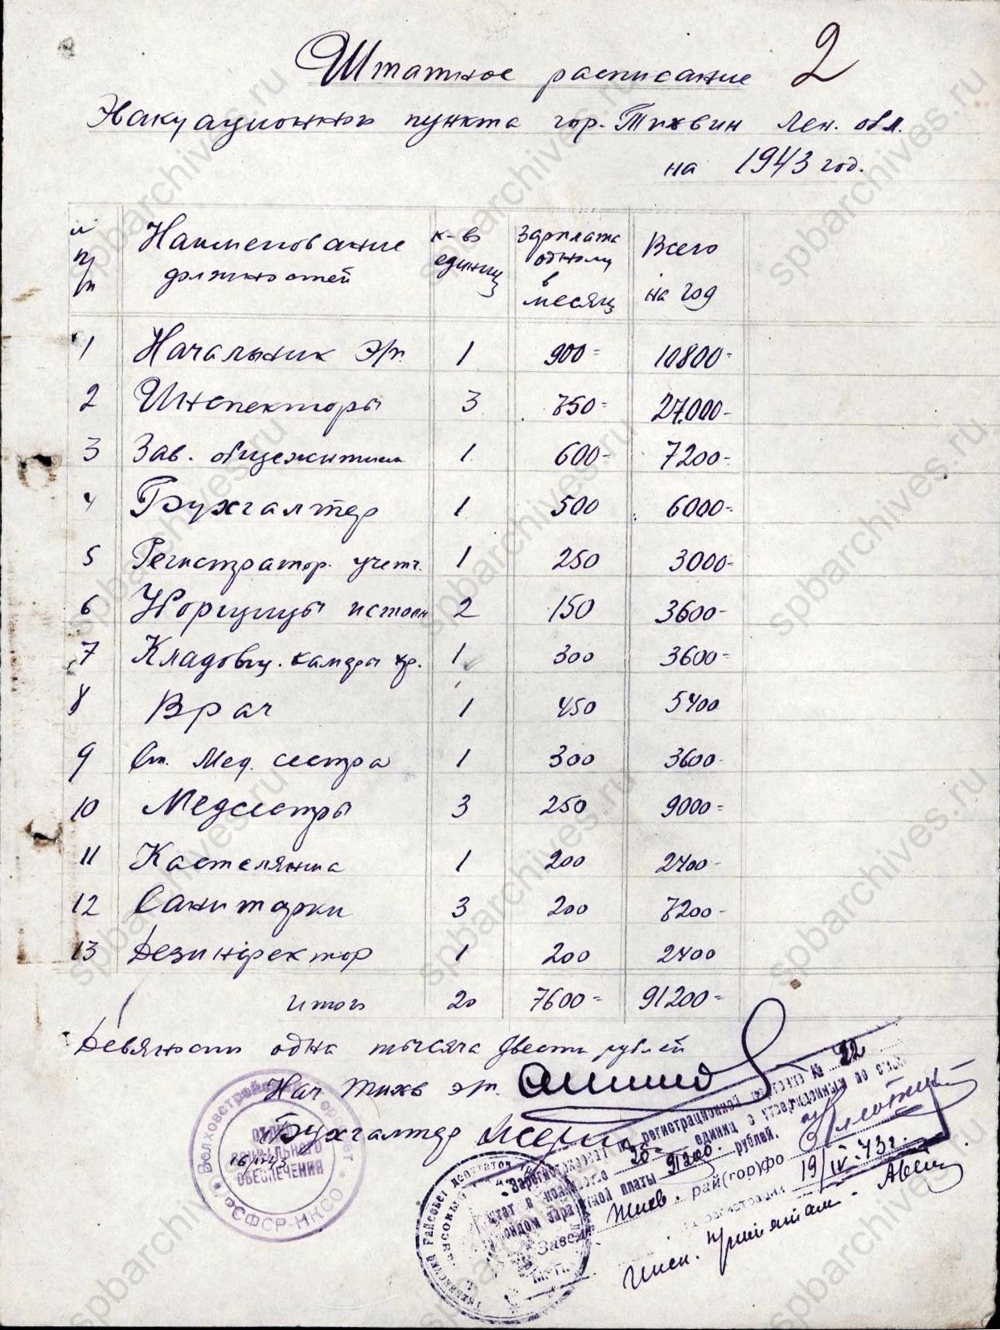 Штатное расписание 2
Эвакуационного пункта гор. Тихвин Лен. обл.
на 1943 год.
№ п/п Наименование должностей к-во единиц Зарплата одному в месяц Всего на год
1 Начальник э/п. 1 900= 10800=
2 Инспекторы 3 750= 27.000-
3 Зав. общежитием 1 600- 7200-
4 Бухгалтер 1 500 6000=
5 Регистратор. учетч. 1 250 3000=
6 Уборщицы истопн 2 150 3600-
7 Кладовщ. камеры хр. 1 300 3600=
8 Врач 1 450 5400
9 Ст. Мед. сестра 1 300 3600-
10 Медсестры 3 250 9000=
11 Кастелянша 1 200 2400-
12 Санитарки 3 200 7200-
13 Дезинфектор 1 200 2400
Итого 20 7600= 91200=
Девяносто одна тысяча двести рублей
Нач Тихв э/п.
Бухгалтер
Волховстроевский горсовет
ОТДЕЛ
СОЦИАЛЬНОГО
ОБЕСПЕЧЕНИЯ
РСФСР-НКСО
Зарегистрирован
штат в количестве 20 единиц с
фондом заработной платы 91200. рублей.
Завед. рай(гор)фо
регистрации 19/IV-43 г.
М. П.
Инсп.
spbarchives.ru